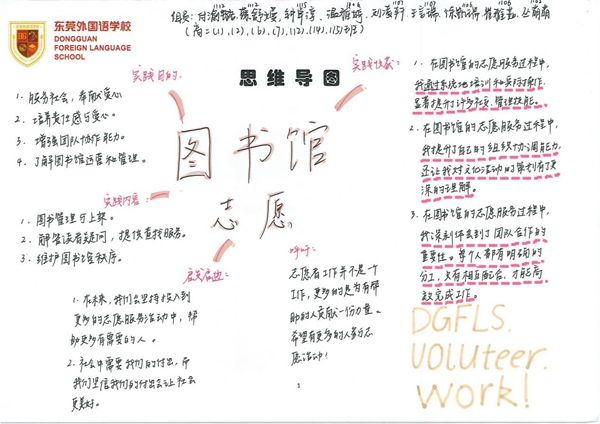 东莞外国语学校
DONGGUAN
FOREIGN LANGUAGE
SCHOOL
组员:
(高二(1),(2),(6),(7),(12),(14),(15)班)
思维导图
实践目的:
1. 服务社会,奉献爱心
2. 培养责任感与爱心。
3. 增强团队协作能力。
4. 了解图书馆运营和管理。
图书馆
志愿。
实践内容:
1. 图书管理与上架。
2. 解答读者疑问,提供查找服务。
3. 维护图书馆秩序。
启发启迪:
1. 在未来,我们会坚持投入到
更多的志愿服务活动中,帮
助更多有需要的人。
2. 社会中需要我们的付出,而
我们坚信我们的付出会让社会
更美好。
呼吁:
志愿者工作并不是一个
工作,更多的是为有帮
助的人贡献一份力量。
希望有更多的人参与志
愿活动!
实践收获:
1. 在图书馆的志愿服务过程中,
我通过系统地培训和实际操作,
显著提升了许多社交、管理技能。
2. 在图书馆的志愿服务过程中,
我提升了自己的组织协调能力,
还让我对文化活动的策划有了更
深的理解。
3. 在图书馆的志愿服务过程中,
我深刻体会到了团队合作的
重要性。每个人都有明确的
分工,只有相互配合,才能高
效完成工作。
DGFLS.
Volunteer.
Work!